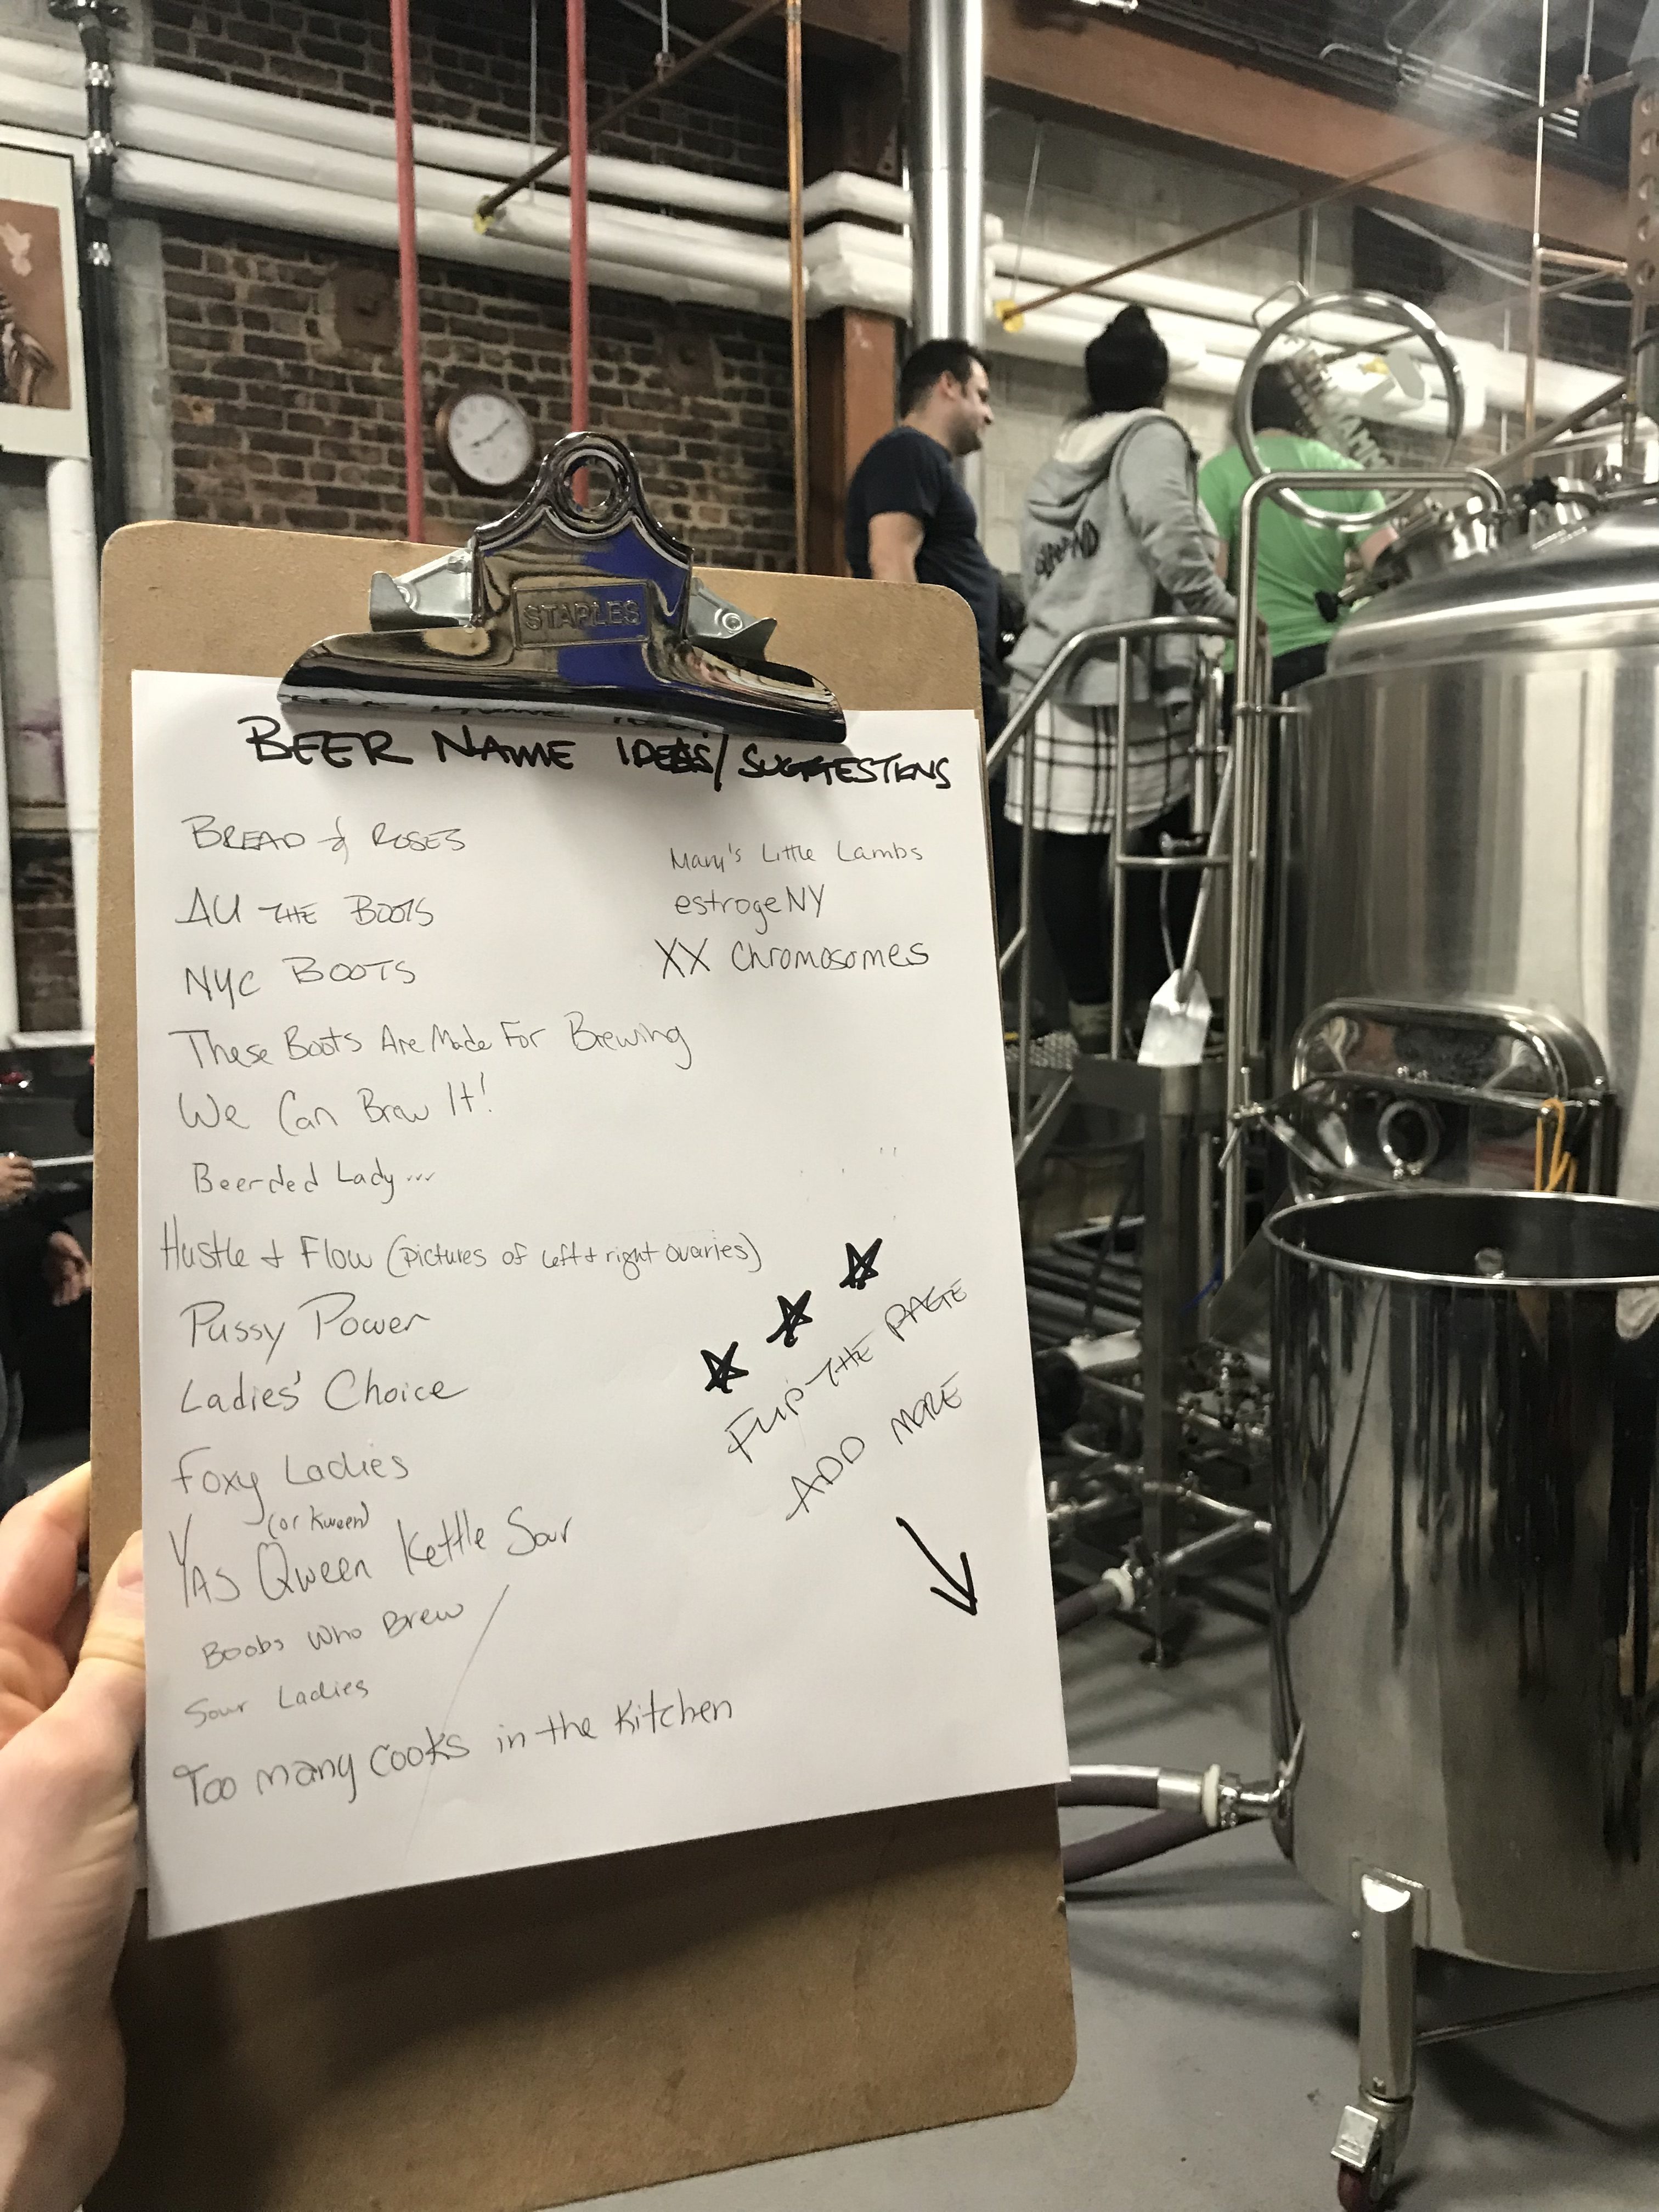 STAPLES
BEER NAME IDEAS/SUGGESTIONS
BREAD & ROSES
ALL THE BOOTS
NYC BOOTS
These Boots Are Made For Brewing
We Can Brew It!
Beerded Lady...
Hustle + Flow (pictures of left + right ovaries)
Pussy Power
Ladies' Choice
Foxy Ladies
(or Kween)
YAS Qween Kettle Sour
Boobs Who Brew
Sour Ladies
Too many cooks in the kitchen
Mary's Little Lambs
estrogeNY
XX Chromosomes
FLIP THE PAGE
ADD MORE